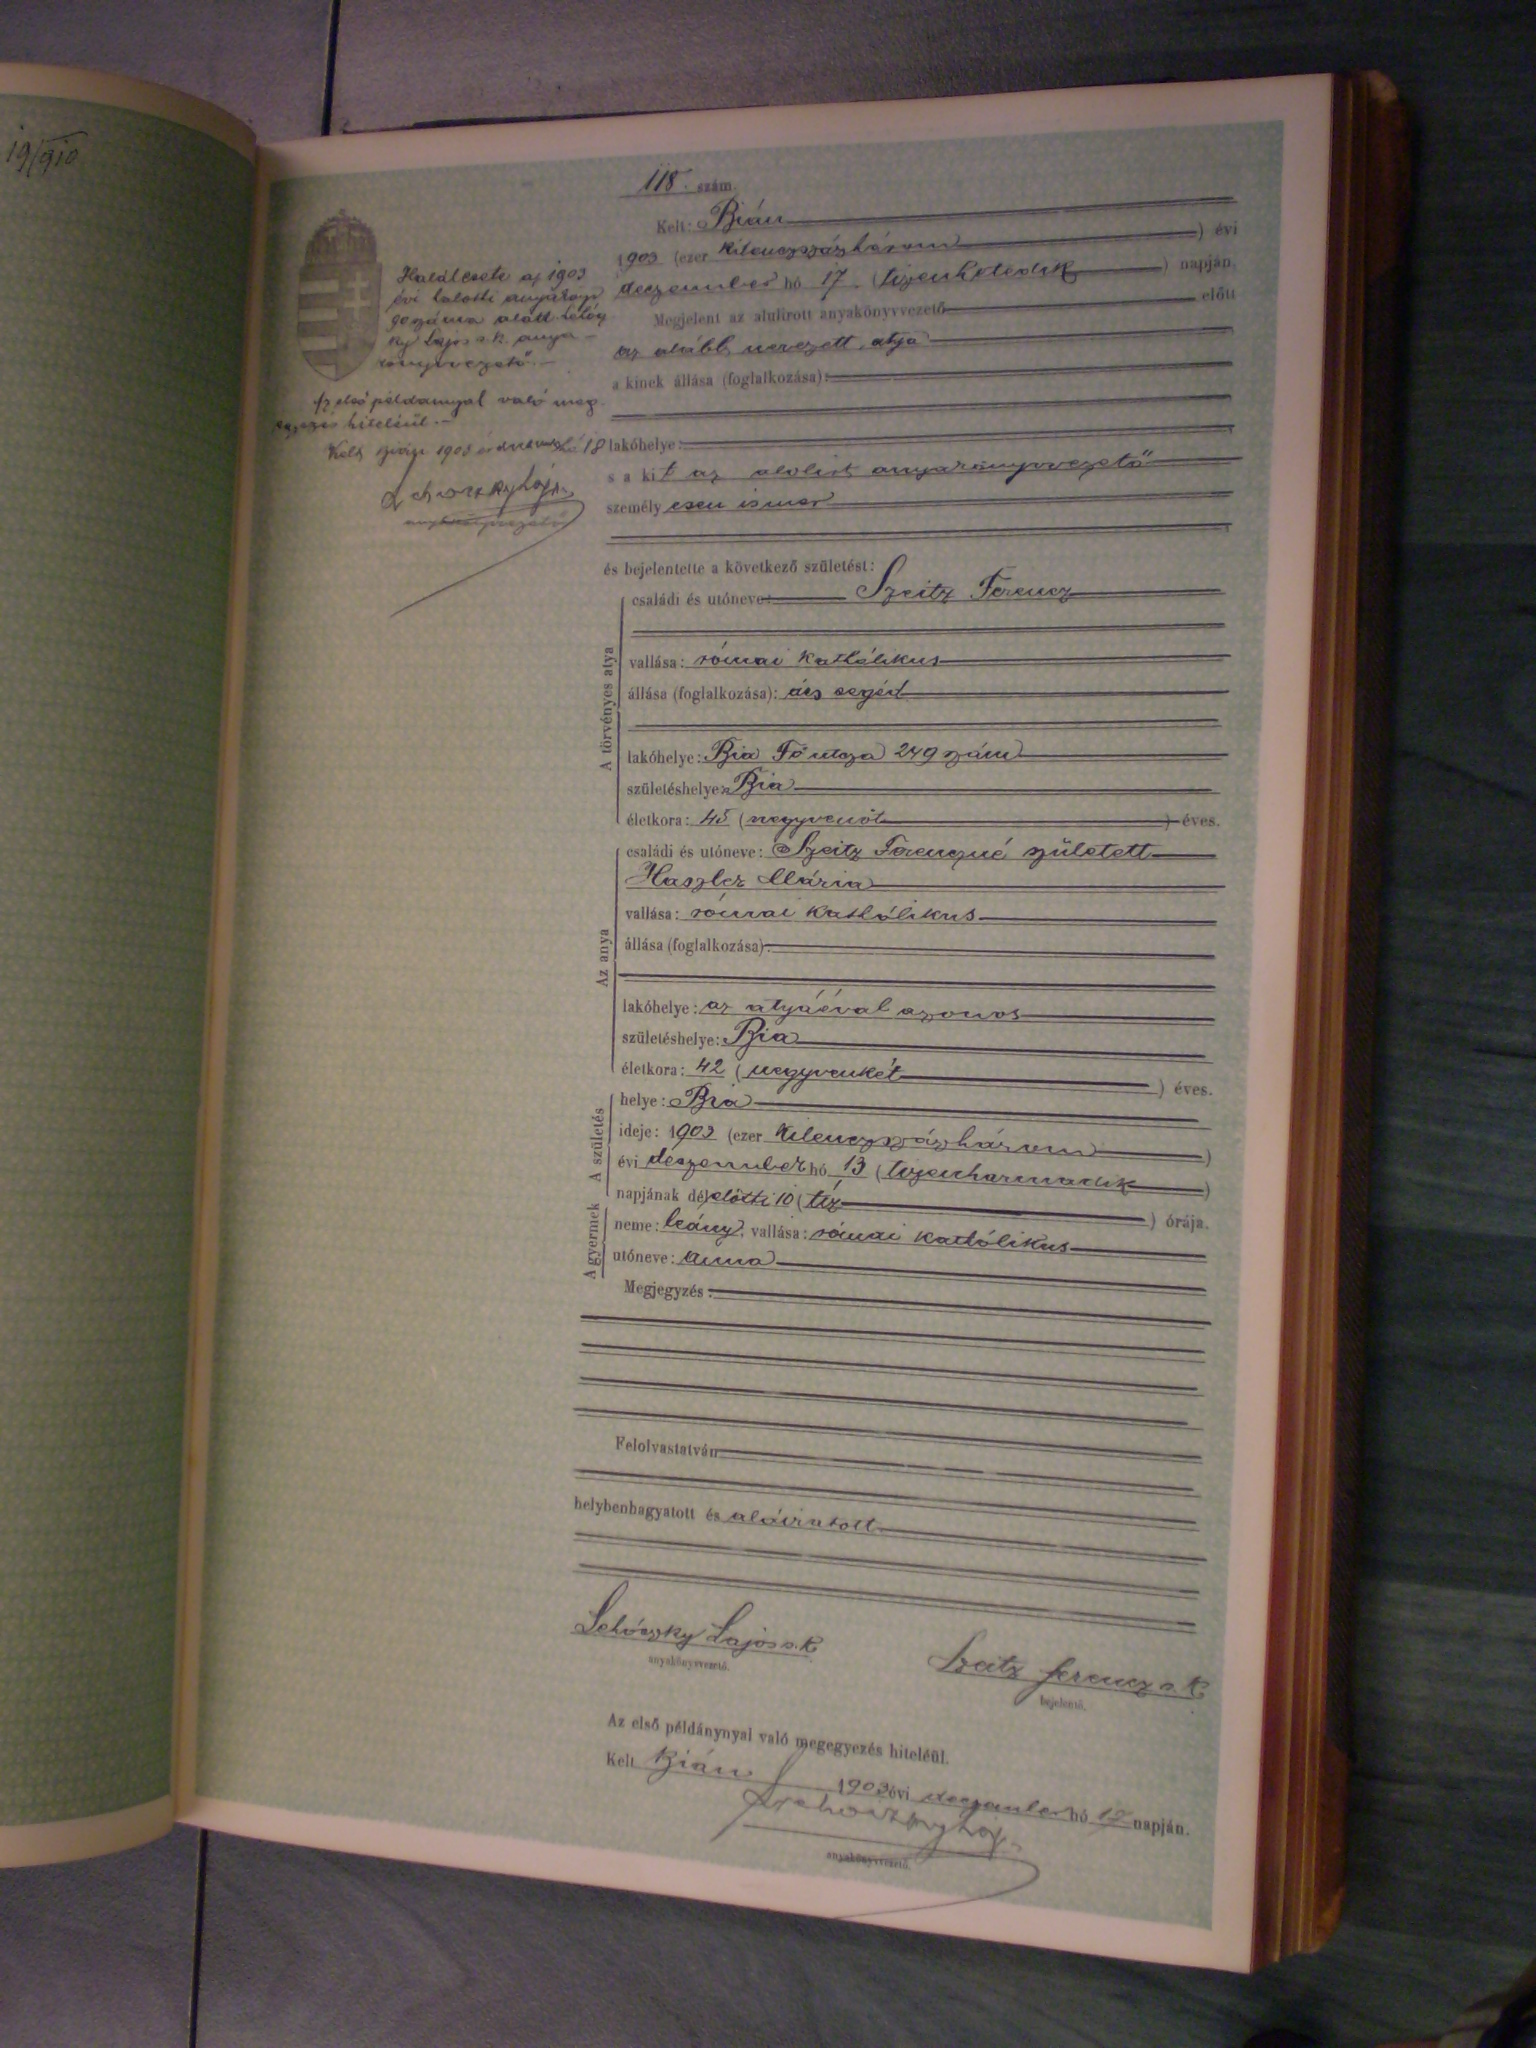 19/910
118. szám.
Kelt: Bián
1903 (ezer kilenczszázhárom) évi
deczember hó 17. (tizenhetedik) napján,
Megjelent az alulirott anyakönyvvezető előtt
az alább nevezett atya
a kinek állása (foglalkozása):
lakóhelye:
s a kit az alulirt anyakönyvvezető
személyesen ismer
és bejelentette a következő születést:
Halálesete az 1903
évi halotti anyakönyv
90 száma alatt
Lajos s.k. anya-
könyvvezető.
Az első példánynyal való meg-
egyezés hiteléül.
Kelt Bián 1903 évi 18
anyakönyvvezető
A törvényes atya
családi és utóneve: Szeitz Ferencz
vallása: római kathólikus
állása (foglalkozása): ács segéd
lakóhelye: Bia Fő utcza 249 szám
születéshelye: Bia
életkora: 45 (negyvenöt) éves.
Az anya
családi és utóneve: Szeitz Ferenczné született
Haszlez Mária
vallása: római kathólikus
állása (foglalkozása):
lakóhelye: az atyáéval azonos
születéshelye: Bia
életkora: 42 (negyvenkét) éves.
A születés
helye: Bia
ideje: 1903 (ezer kilenczszázhárom)
évi deczember hó 13 (tizenharmadik)
napjának délelőtti 10 (tíz) órája.
A gyermek
neme: leány, vallása: római kathólikus
utóneve: Anna
Megjegyzés:
Felolvastatván
helybenhagyatott és aláiratott
Lehóczky Lajos s.k.
anyakönyvvezető.
Szeitz Ferencz s.k.
bejelentő.
Az első példánynyal való megegyezés hiteléül.
Kelt Bián 1903 évi deczember hó napján.
Lehoczky Laj.
anyakönyvvezető.